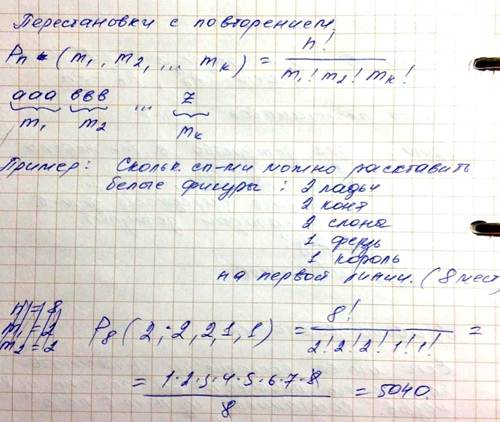 Перестановки с повторением
Pn (m1, m2, ... mk) = n! / m1! m2! mk!
aaa bbb ... z
m1 m2 mk
Пример: Скольк. сп-ми можно расставить
белые фигуры: 2 ладьи
2 коня
2 слона
1 ферзь
1 король
на первой линии. (8 мест)
n = 8
m1 = 2
m2 = 2
P8 (2, 2, 2, 1, 1) = 8! / 2! 2! 2! 1! 1! =
= 1·2·3·4·5·6·7·8 / 8 = 5040